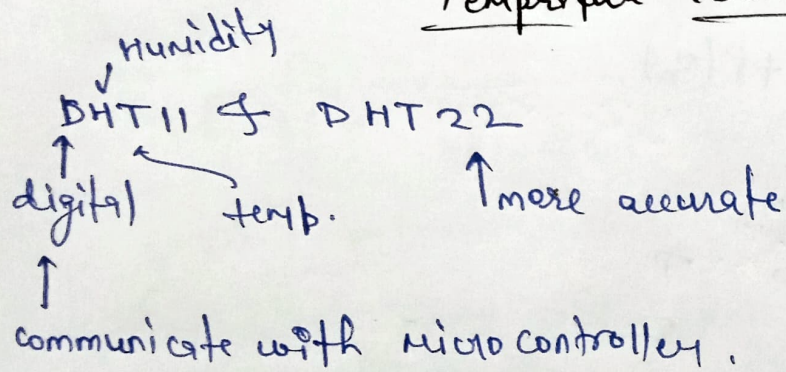 Humidity
DHT11 & DHT22
digital temp. more accurate
communicate with microcontroller.